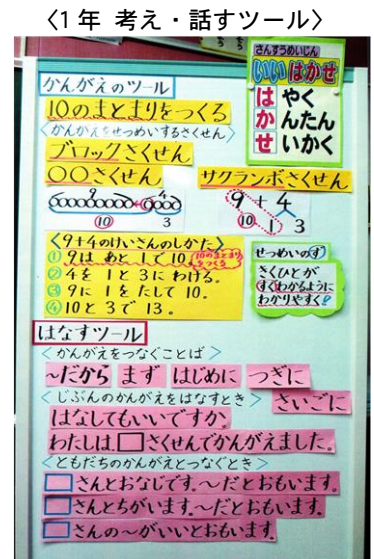 〈1年 考え・話すツール〉
さんすうめいじん
いいはかせ
はやく
かんたん
せいかく
かんがえのツール
10のまとまりをつくる
〈かんがえをせつめいするさくせん〉
ブロックさくせん
〇〇さくせん
サクランボさくせん
9 4
10 3
9+4
10 1 3
〈9+4のけいさんのしかた〉
① 9は あと 1で 10。 10のまとまりをつくる
② 4を 1と 3に わける。
③ 9に 1を たして 10。
④ 10と 3で 13。
せつめいのす
きくひとが
すぐわかるように
わかりやすく
はなすツール
〈かんがえをつなぐことば〉
～だから まず はじめに つぎに
さいごに
〈じぶんのかんがえをはなすとき〉
はなしてもいいですか。
わたしは、□さくせんでかんがえました。
〈ともだちのかんがえとつなぐとき〉
□さんとおなじです。～だとおもいます。
□さんとちがいます。～だとおもいます。
□さんの～がいいとおもいます。